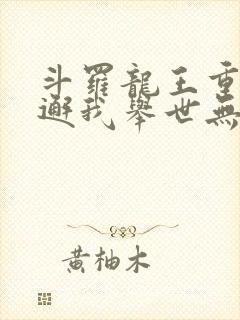 斗羅龍王重
邂我舉世無
黃柚木